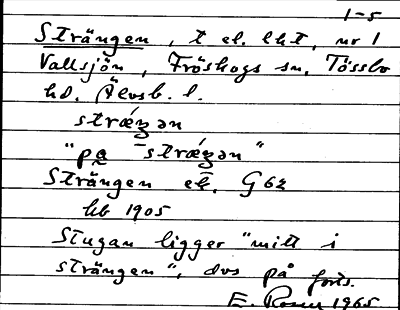 1-5
Strängen, t el. lht, nr 1
Vallsjön, Fröskogs sn, Tössbo
hd. Älvsb. l.
strǽŋən
"pa strǽŋən"
Strängen ek. G 62
hb 1905
Stugan ligger "mitt i
strängen", dvs på forts.
E. 1965